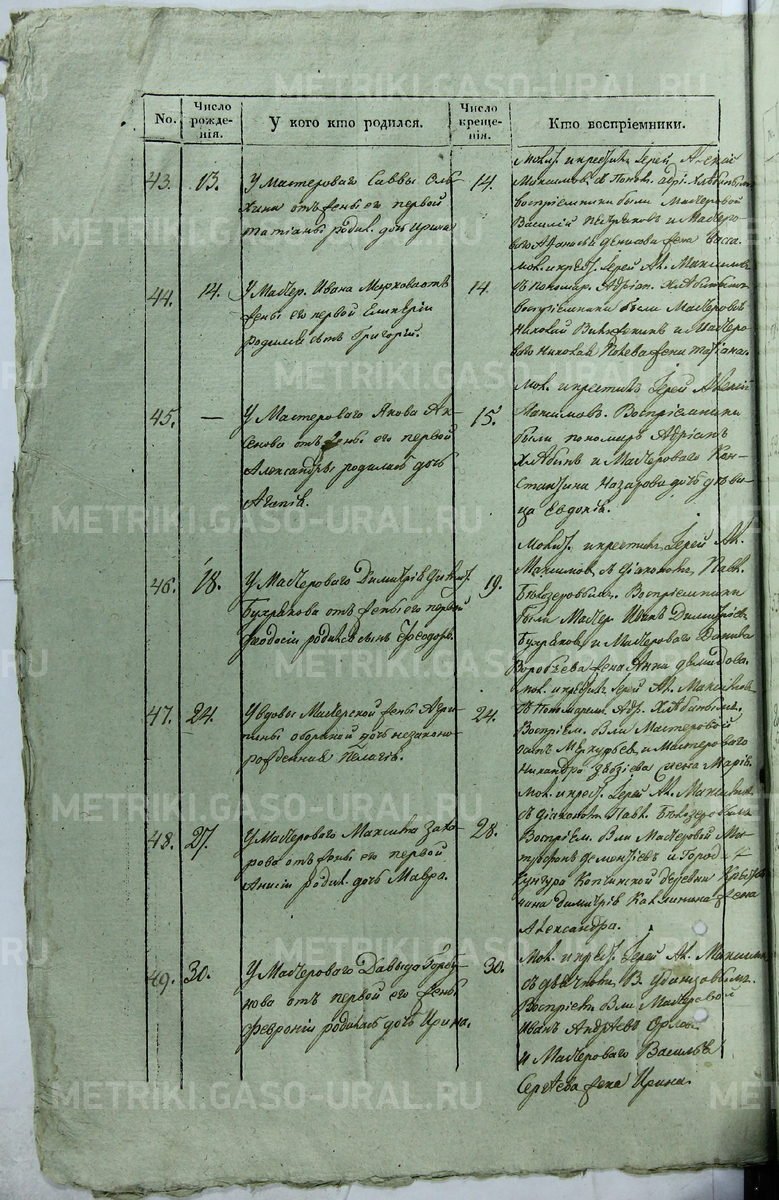 METRIKI.GASO-URAL.RU
No.
Число рожде-нія.
У кого кто родился.
Число креще-нія.
Кто воспріемники.
43.
13.
У Мастероваго Саввы
отъ жены его первой
Татіаны родил. дочь Ирина
14.
Мол. и крестилъ Іерей Алексій
Максимовъ съ Поном.
воспріемники были Мастеровой
Василій и Мастеро-
ваго жена Васса.
44.
14.
У Мастер. Ивана отъ
жены его первой
родился сынъ Григорій.
14.
мол. и крест. Іерей Ал. Максимовъ
съ пономар. Адріан.
воспріемники были Мастеров.
Николай и Мастеро-
ваго Николая жена Татіана.
45.
—
У Мастероваго Якова Ак-
сенова отъ жены его первой
Александры родилась дочь
Агапія.
15.
Мол. и крестилъ Іерей Алексій
Максимовъ. Воспріемники
были пономарь Адріанъ
Хлѣбинъ и Мастероваго Кон-
стантина Назарова дочь дѣви-
ца Евдокія.
46.
18.
У Мастероваго Димитрія
Бухрякова отъ жены его первой
Ѳеодосіи родился сынъ Ѳеодоръ.
19.
Молит. и крестилъ Іерей Ал.
Максимов. съ діакономъ Павл.
Бѣлозеровымъ. Воспріемники
были Мастер. Иванъ Димитріевъ
Бухряковъ и Мастероваго Данила
Воробьева жена Анна Демидова.
47.
24.
У вдовы Мастерской жены
дочь незаконо-
рожденная Пелагія.
24.
мол. и крестил. Іерей Ал. Максимов.
съ Пономаремъ Адр. Хлѣбинымъ.
Воспріем. были Мастеровой
Меркурьевъ и Мастероваго
Никандра жена Марія
48.
27.
У Мастероваго Максима Заха-
рова отъ жены его первой
Анисіи родил. дочь Мавра.
28.
мол. и крест. Іерей Ал. Максимов.
съ діакономъ Павл. Бѣлозеровымъ
Воспріем. были Мастеровой Ми-
трофанъ Дементьевъ и Город
Кунгура деревни Крестья-
нина Димитрія жена
Александра.
49.
30.
У Мастероваго Давыда Горбу-
нова отъ первой его жены
Февроніи родилась дочь Ирина.
30.
Мол. и крест. Іерей Ал. Максим.
съ дьячкомъ В.
Воспріем. были Мастеровой
Иванъ Андреевъ Орлов
и Мастероваго Василья
Сергѣева жена Ирина.